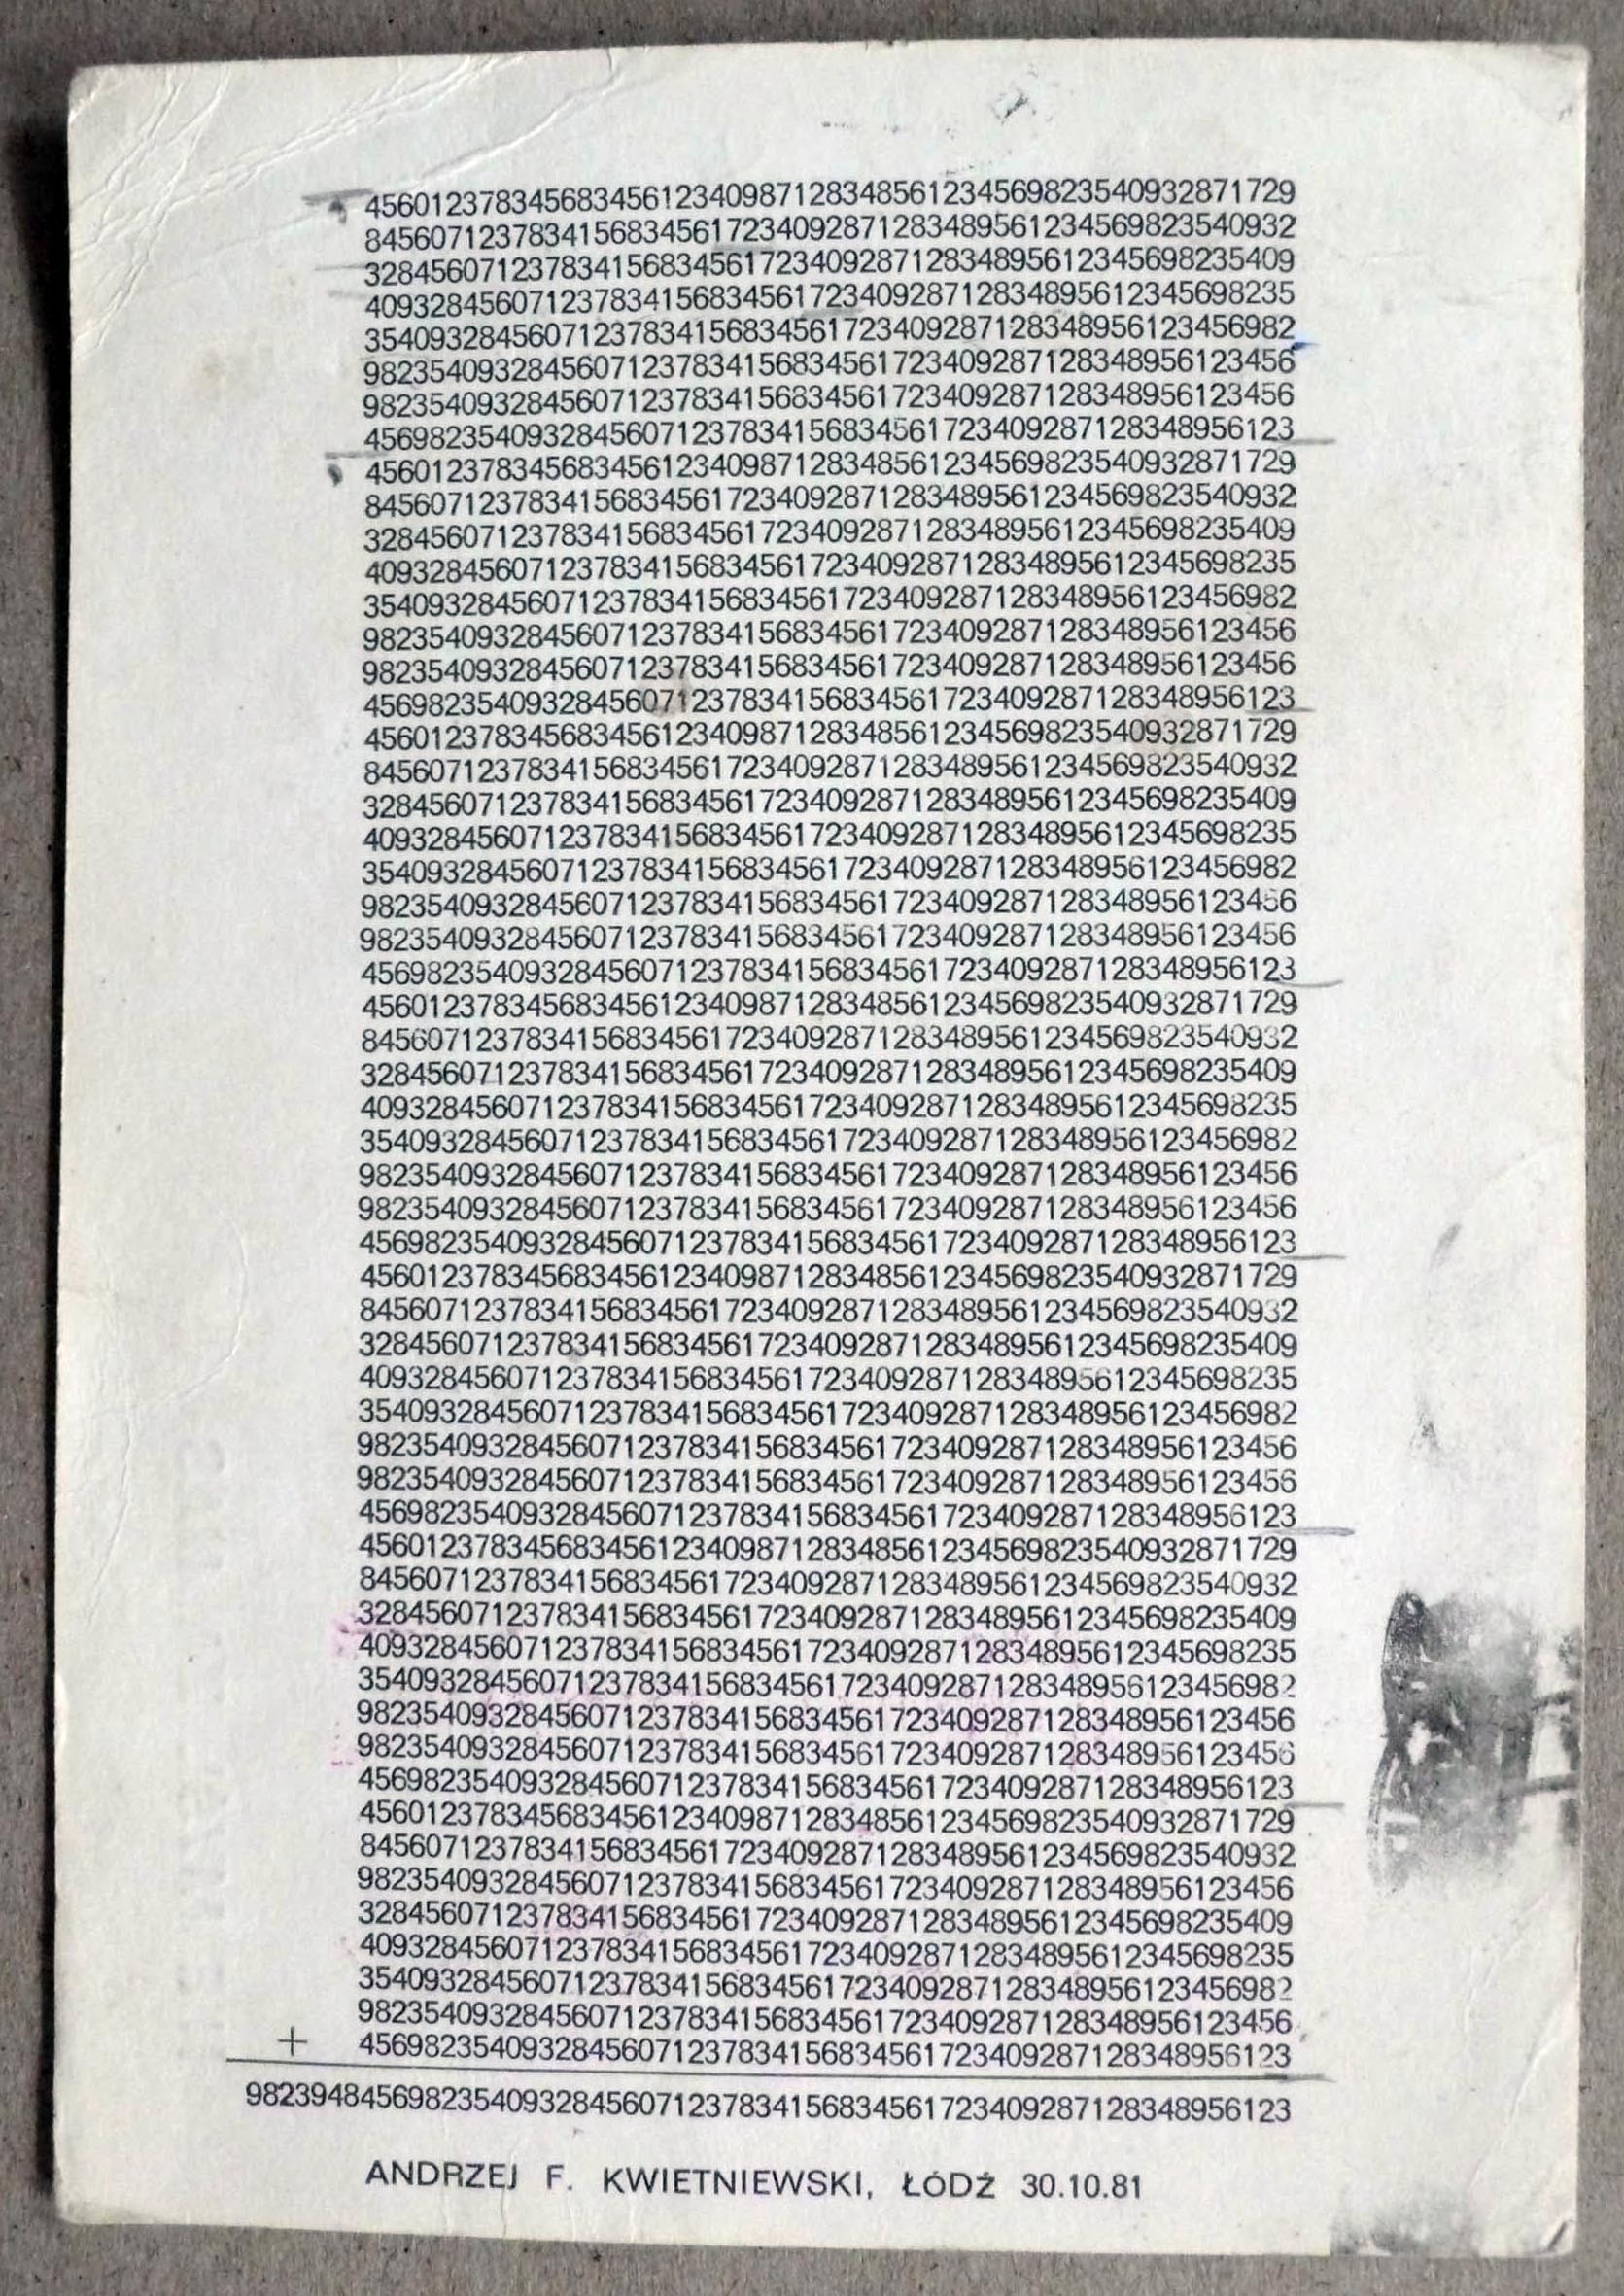 45601237834568345612340987128348561234569823540932871729
84560712378341568345617234092871283489561234569823540932
32845607123783415683456172340928712834895612345698235409
40932845607123783415683456172340928712834895612345698235
35409328456071237834156834561723409287128348956123456982
98235409328456071237834156834561723409287128348956123456
98235409328456071237834156834561723409287128348956123456
45698235409328456071237834156834561723409287128348956123
45601237834568345612340987128348561234569823540932871729
84560712378341568345617234092871283489561234569823540932
32845607123783415683456172340928712834895612345698235409
40932845607123783415683456172340928712834895612345698235
35409328456071237834156834561723409287128348956123456982
98235409328456071237834156834561723409287128348956123456
98235409328456071237834156834561723409287128348956123456
45698235409328456071237834156834561723409287128348956123
45601237834568345612340987128348561234569823540932871729
84560712378341568345617234092871283489561234569823540932
32845607123783415683456172340928712834895612345698235409
40932845607123783415683456172340928712834895612345698235
35409328456071237834156834561723409287128348956123456982
98235409328456071237834156834561723409287128348956123456
98235409328456071237834156834561723409287128348956123456
45698235409328456071237834156834561723409287128348956123
45601237834568345612340987128348561234569823540932871729
84560712378341568345617234092871283489561234569823540932
32845607123783415683456172340928712834895612345698235409
40932845607123783415683456172340928712834895612345698235
35409328456071237834156834561723409287128348956123456982
98235409328456071237834156834561723409287128348956123456
98235409328456071237834156834561723409287128348956123456
45698235409328456071237834156834561723409287128348956123
45601237834568345612340987128348561234569823540932871729
84560712378341568345617234092871283489561234569823540932
32845607123783415683456172340928712834895612345698235409
40932845607123783415683456172340928712834895612345698235
35409328456071237834156834561723409287128348956123456982
98235409328456071237834156834561723409287128348956123456
98235409328456071237834156834561723409287128348956123456
45698235409328456071237834156834561723409287128348956123
45601237834568345612340987128348561234569823540932871729
84560712378341568345617234092871283489561234569823540932
32845607123783415683456172340928712834895612345698235409
40932845607123783415683456172340928712834895612345698235
35409328456071237834156834561723409287128348956123456982
98235409328456071237834156834561723409287128348956123456
98235409328456071237834156834561723409287128348956123456
45698235409328456071237834156834561723409287128348956123
45601237834568345612340987128348561234569823540932871729
84560712378341568345617234092871283489561234569823540932
98235409328456071237834156834561723409287128348956123456
32845607123783415683456172340928712834895612345698235409
40932845607123783415683456172340928712834895612345698235
35409328456071237834156834561723409287128348956123456982
98235409328456071237834156834561723409287128348956123456
+ 45698235409328456071237834156834561723409287128348956123
982394845698235409328456071237834156834561723409287128348956123
ANDRZEJ F. KWIETNIEWSKI, ŁÓDŹ 30.10.81